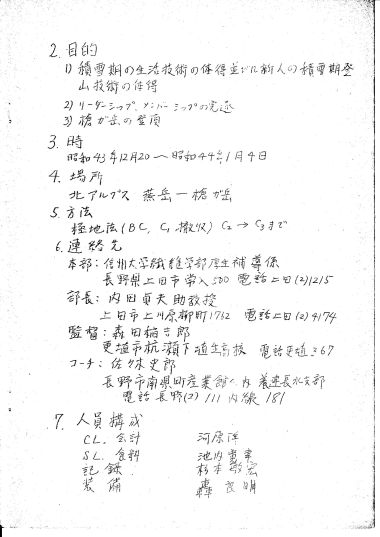 2. 目的
1) 積雪期の生活技術の体得並びに新人の積雪期登
山技術の体得
2) リーダーシップ、メンバーシップの完遂
3) 槍ガ岳の登頂
3. 時
昭和43年12月20〜昭和44年1月4日
4. 場所
北アルプス 燕岳ー槍ガ岳
5. 方法
極地法(BC, C1 撤収) C2 → C3まで
6. 連絡先
本部:信州大学繊維学部厚生補導係
長野県上田市常入500 電話上田(2)1215
部長:内田貞夫助教授
上田市上川原柳町1732 電話上田(2)4174
監督:森田稲吉郎
更埴市杭瀬下埴生高校 電話更埴367
コーチ:佐々木史郎
長野市南県町産業館内
電話長野(2)111内線181
7. 人員構成
CL. 会計 河原洋
SL. 食料 池内
記録 杉本敏宏
装備 轟良明